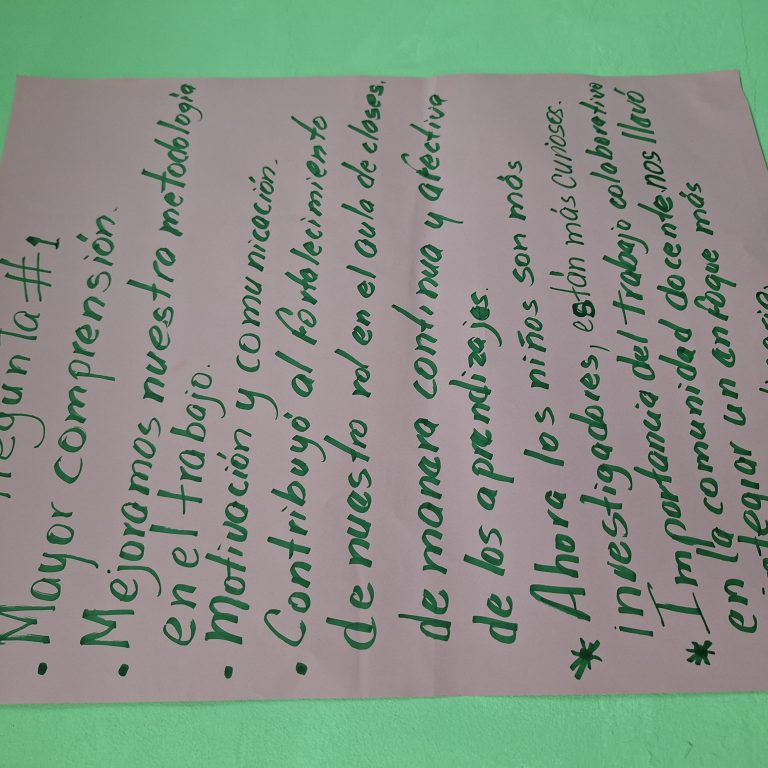 Pregunta #1
• Mayor comprensión.
• Mejoramos nuestra metodología
en el trabajo.
• Motivación y comunicación.
• Contribuyó al fortalecimiento
de nuestro rol en el aula de clases,
de manera continua y afectiva
de los aprendizajes.
* Ahora los niños son más
investigadores, están más curiosos.
Importancia del trabajo colaborativo
* en la comunidad docente, nos llavó
integrar un anfoque más